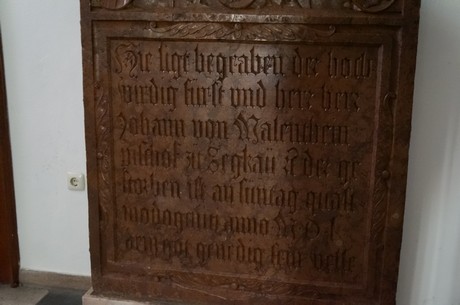 Hie ligt begraben der hoch
wirdig furst und herr herr
Johann von Malenthein
pischof zu Segkau &c der ge
storben ist an suntag quasi
modogeniti anno
dem got genedig sein welle